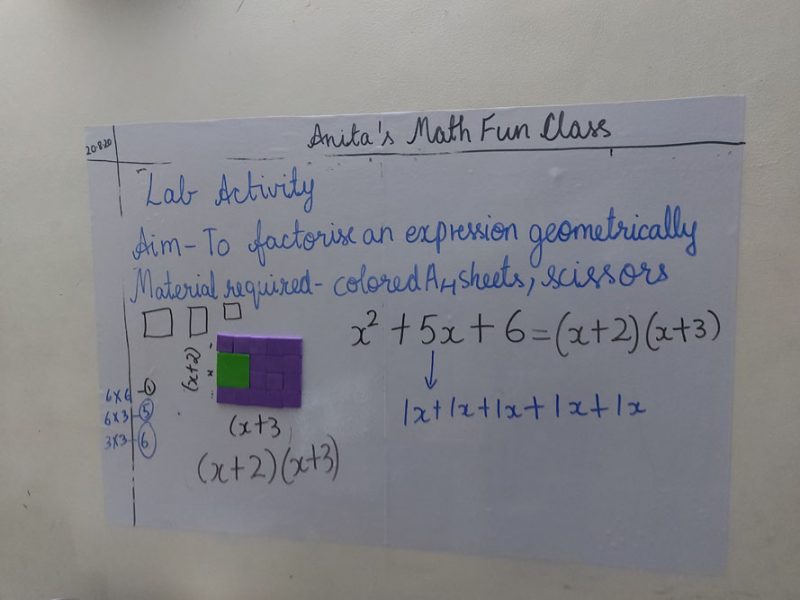 Anita's Math Fun Class
20.8.20
Lab Activity
Aim- To factorise an expression geometrically
Material required- colored A4 sheets, scissors
x² + 5x + 6 = (x+2)(x+3)
1x+1x+1x+1x+1x
(x+2)
x
6x6
6x3 - 5
3x3 - 6
(x+3
(x+2)(x+3)